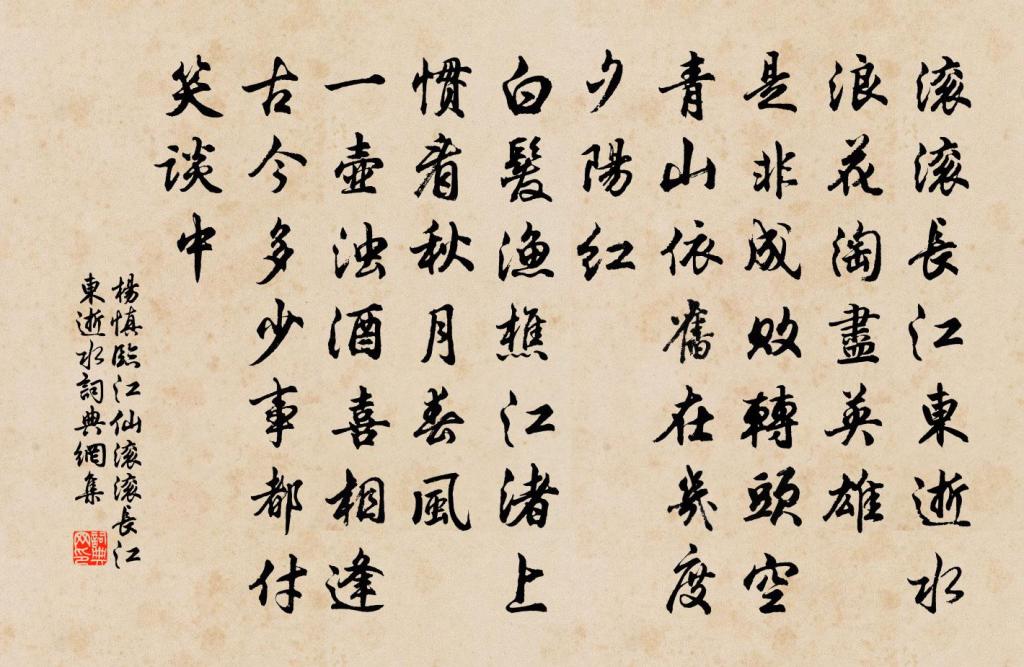 滚滚長江東逝水
浪花淘盡英雄
是非成敗轉頭空
青山依舊在幾度
夕陽紅
白髮漁樵江渚上
慣看秋月春風
一壺濁酒喜相逢
古今多少事都付
笑談中
楊慎臨江仙滚滚長江
東逝水詞典網集
詞典
网印